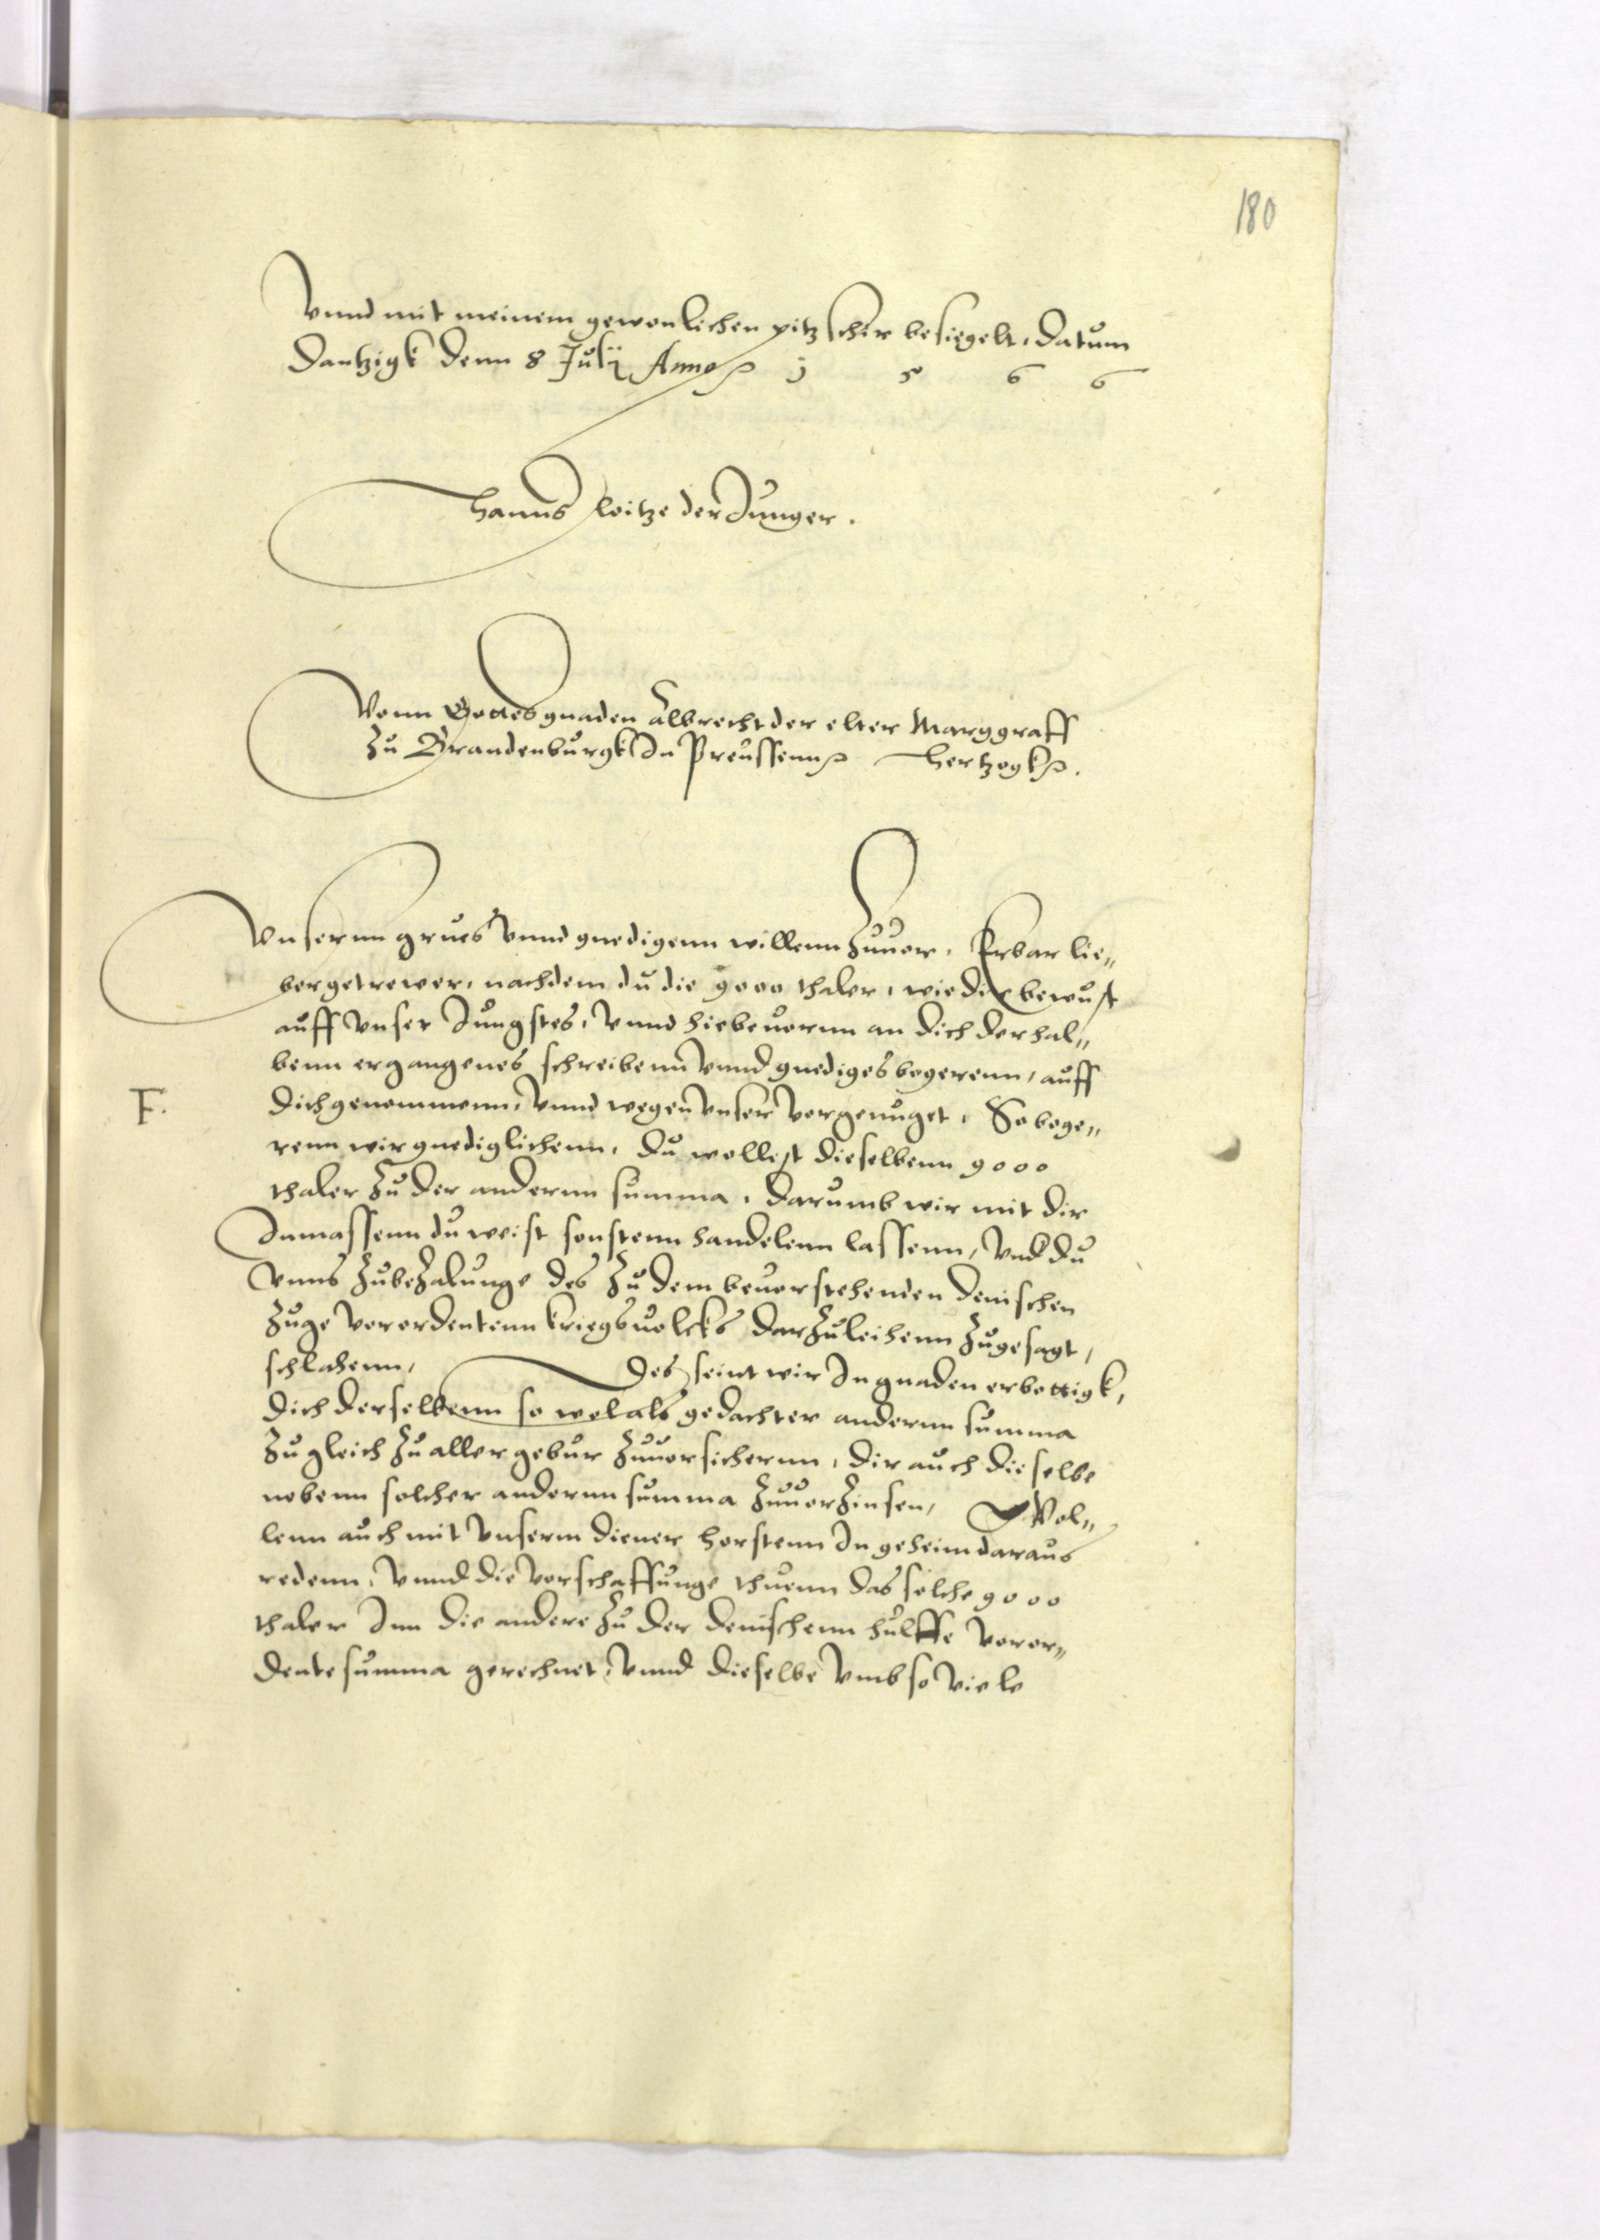 180
Vnnd mit meinem gewonlichen pitzscher besiegelt, Datum
Dantzigk denn 8 Julij Anno 1 5 6 6
Hanns loitze der Junger.
Vonn Gottes gnaden Albrecht der elter Marggraff
Zu Brandenburgk In Preussenn Hertzogk.
Vnsernn grues vnnd gnedigenn willenn zuuor, Erbar lie„
ber getrewer, nachdem du die 9000 thaler, wie dir bewust
auff vnser Jungstes, vnnd hiebeuornn an dich derhal„
benn ergangenes schreibenn vnnd gnediges begerenn, auff
F.
dich genommenn, vnnd wegen vnser vergenuget, So bege„
renn wir gnediglichenn, du wollest dieselbenn 9000
thaler zu der andernn summa, darumb wir mit dir
Inmassenn du weist sonstenn handelenn lassenn, vnd du
vnns zubezalunge des zu dem beuorstehenden denischen
zuge verordentenn kriegsuolcks darzuleihenn zugesagt,
schlahenn, Des seint wir In gnaden erbottigk,
dich derselbenn so wol als gedachter andernn summa
zugleich zu aller gebur zuuorsichernn, dir auch dieselbe
nebenn solcher andernn summa zuuorzinsen, Wol„
lenn auch mit vnserm diener horstenn In geheim daraus
redenn, vnnd die vorschaffunge thuenn das solche 9000
thaler Inn die andere zu der denischenn hulffe veror„
dente summa gerechnet, vnnd dieselbe vmb so viele